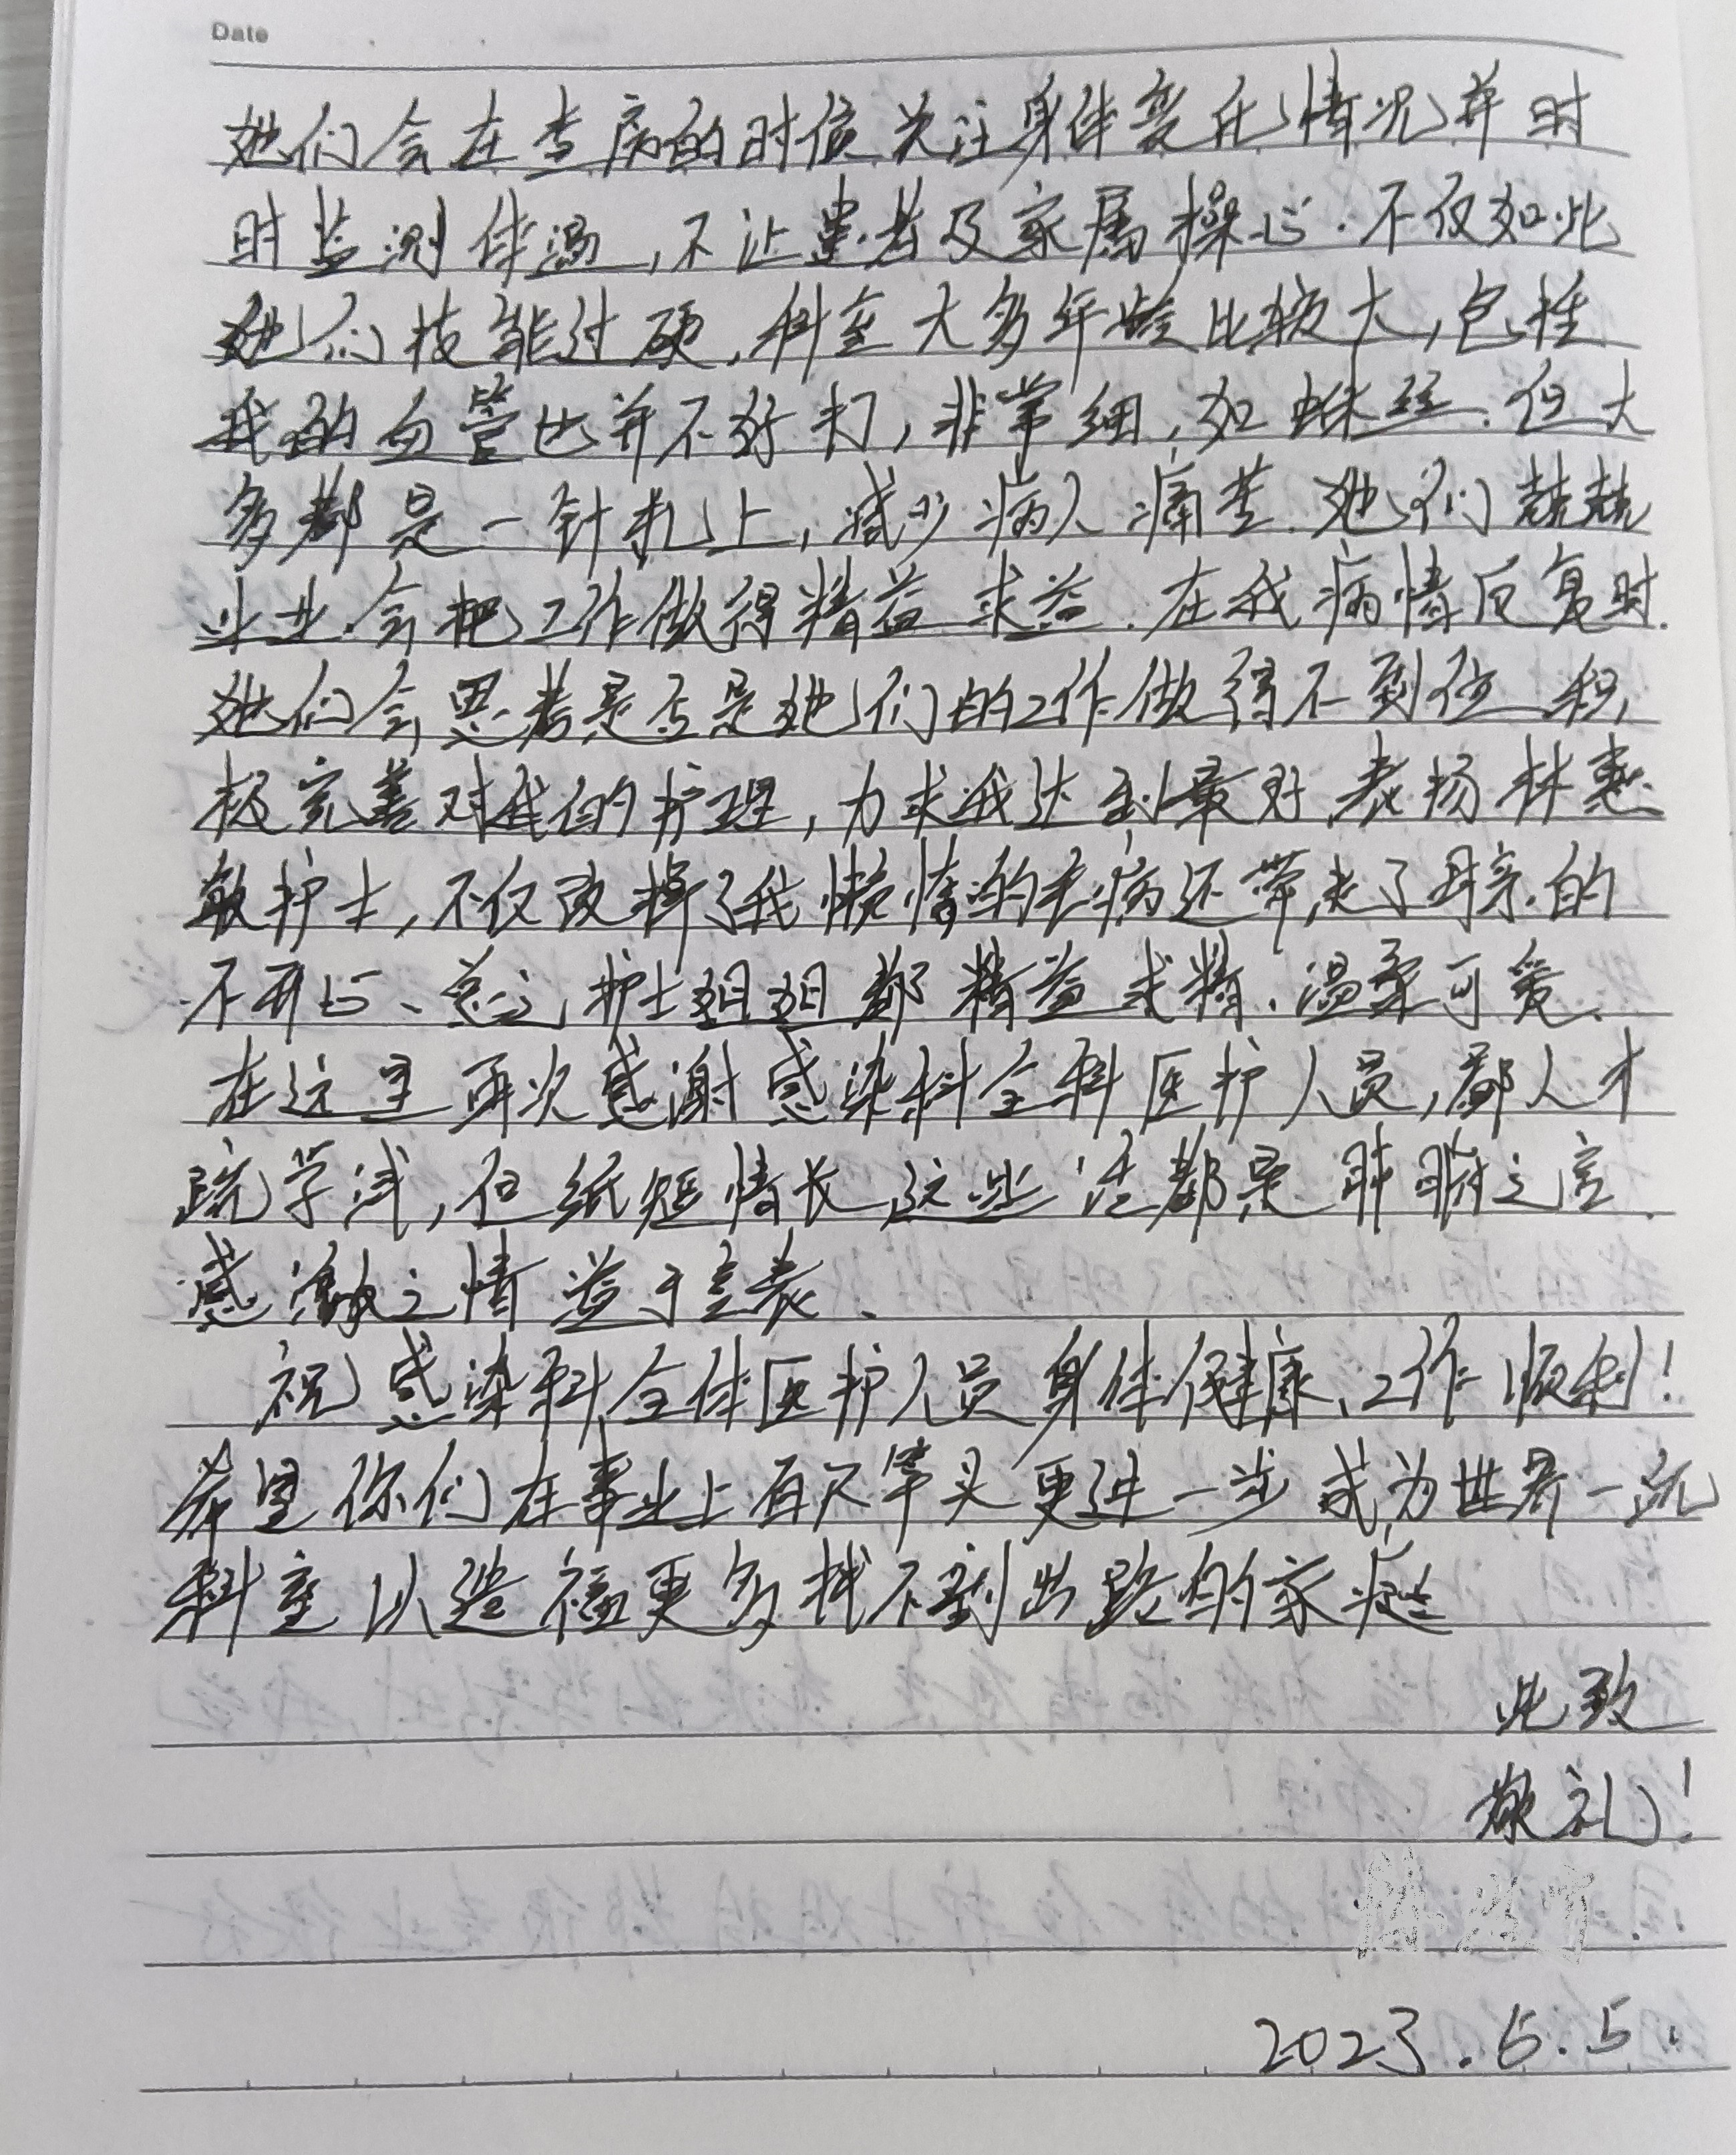 Date
她们会在查病的时候关注身体变化情况并时
时监测体温,不让患者及家属操心.不仅如此
她们技能过硬,科室大多年龄比较大,包括
我的血管也并不好打,非常细,如蛛丝.但大
多都是一针扎上,减少病人痛苦.她们兢兢
业业.会把工作做得精益求益.在我病情反复时.
她们会思考是否是她们的工作做得不到位 积
极完善对我的护理,力求我达到最好.表扬林惠
敏护士,不仅改掉了我懒惰的毛病还带走了母亲的
不开心、总之,护士姐姐都精益求精.温柔可爱、
在这里再次感谢感染科全科医护人员,鄙人才
疏学浅,但纸短情长,这些话都是肺腑之言.
感激之情益于言表、
祝感染科全体医护人员身体健康、工作顺利!
希望你们在事业上百尺竿头更进一步 成为世界一流
科室以造福更多找不到出路的家庭
此致
敬礼!
2023.6.5.